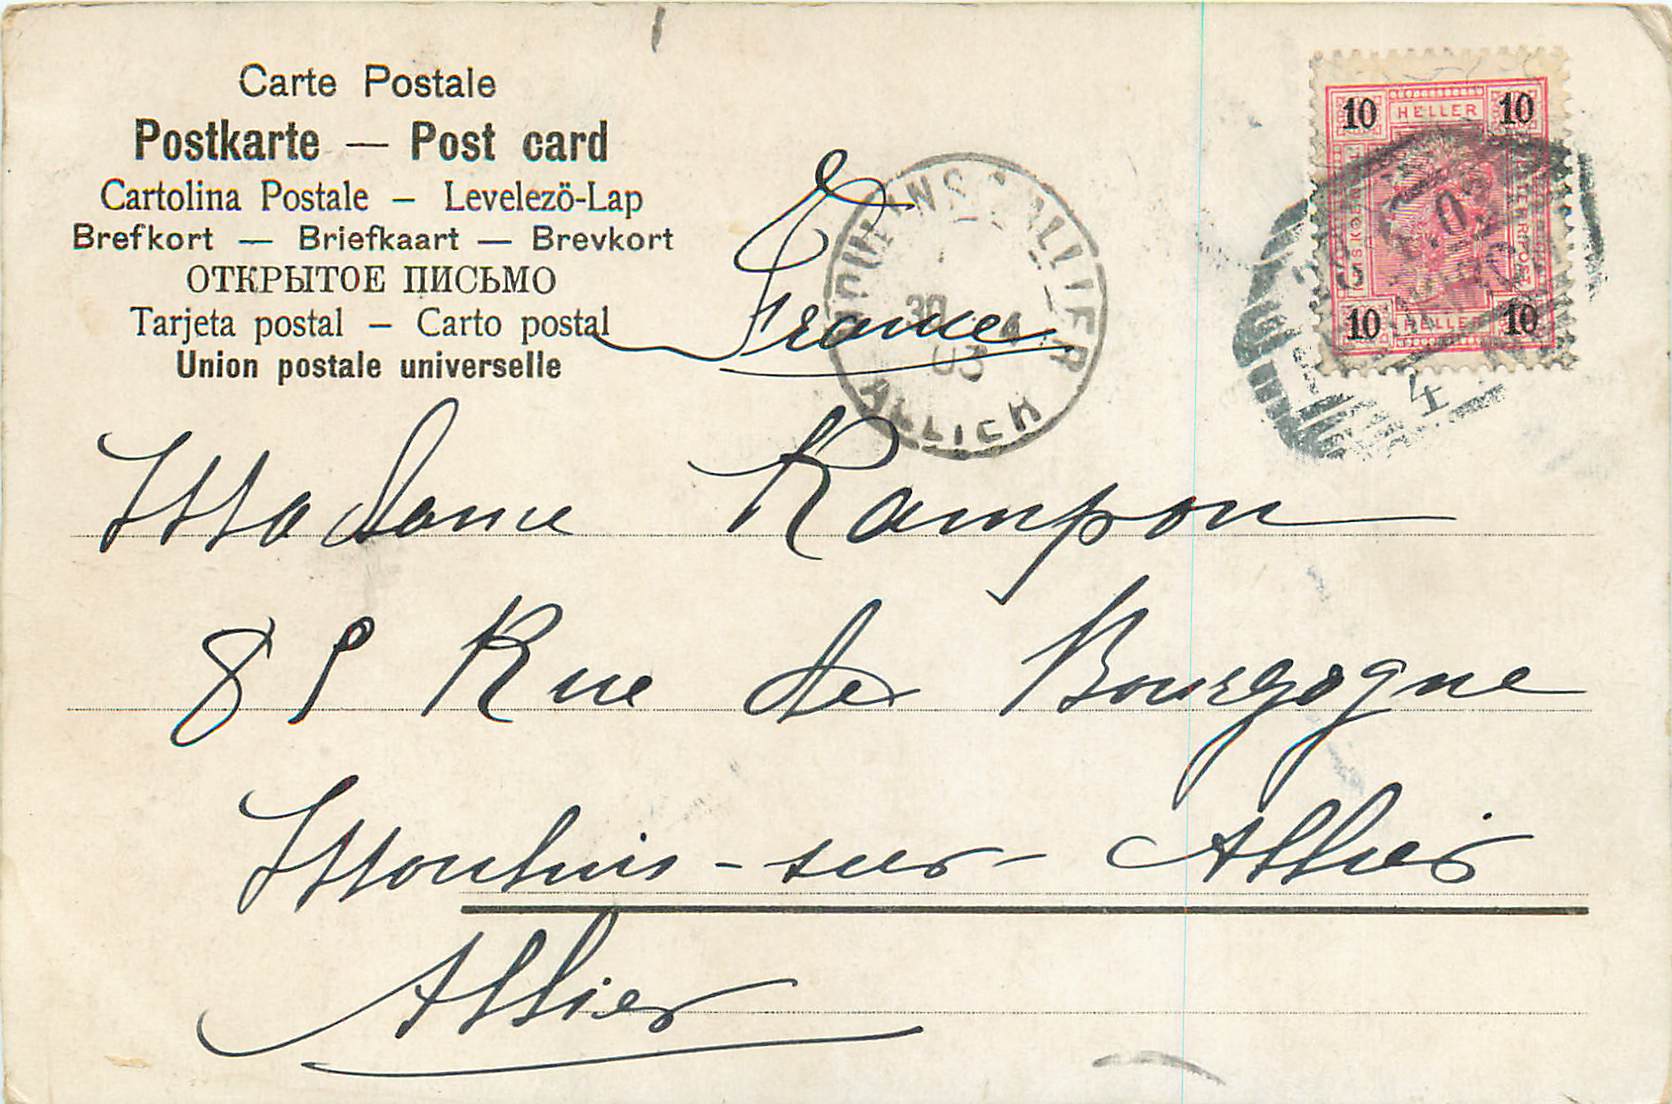 Carte Postale
Postkarte — Post card
Cartolina Postale – Levelezö-Lap
Brefkort — Briefkaart — Brevkort
ОТКРЫТОЕ ПИСЬМО
Tarjeta postal – Carto postal
Union postale universelle
10 HELLER 10
10 HELLER 10
4
MOULINS S ALLIER
30 4
03
ALLIER
France
Madame Rampon
85 Rue de Bourgogne
Moulins-sur-Allier
Allier